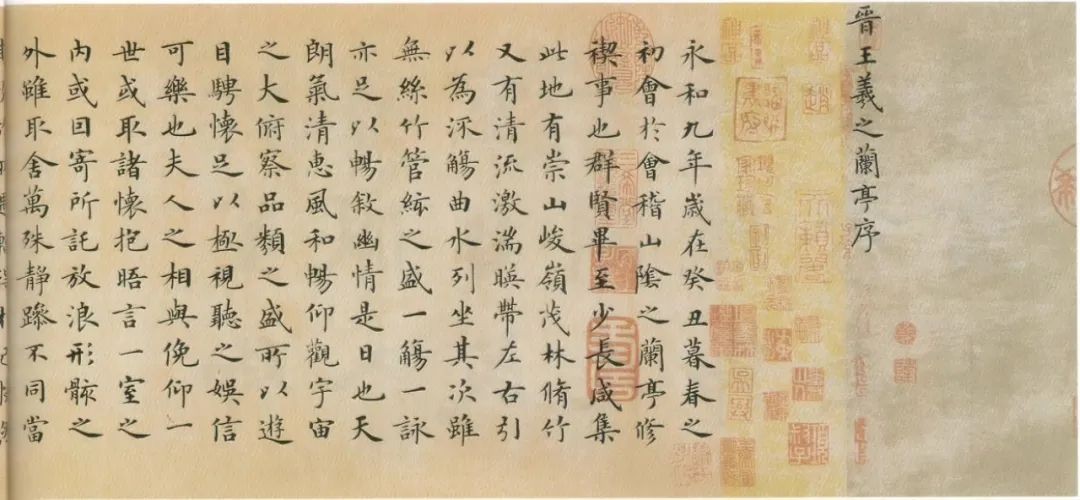 晉王羲之蘭亭序
永和九年歲在癸丑暮春之
初會於會稽山陰之蘭亭修
禊事也群賢畢至少長咸集
此地有崇山峻嶺茂林脩竹
又有清流激湍暎帶左右引
以為流觴曲水列坐其次雖
無絲竹管絃之盛一觴一詠
亦足以暢敘幽情是日也天
朗氣清惠風和暢仰觀宇宙
之大俯察品類之盛所以遊
目騁懷足以極視聽之娛信
可樂也夫人之相與俛仰一
世或取諸懷抱晤言一室之
內或因寄所託放浪形骸之
外雖取舍萬殊靜躁不同當